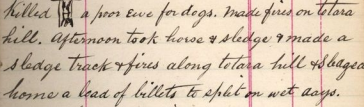 killed a poor ewe for dogs. Made fires on totara
hill. Afternoon took horse & sledge & made a
sledge track & fires along totara hill & sledged
home a load of billets to split on wet days.